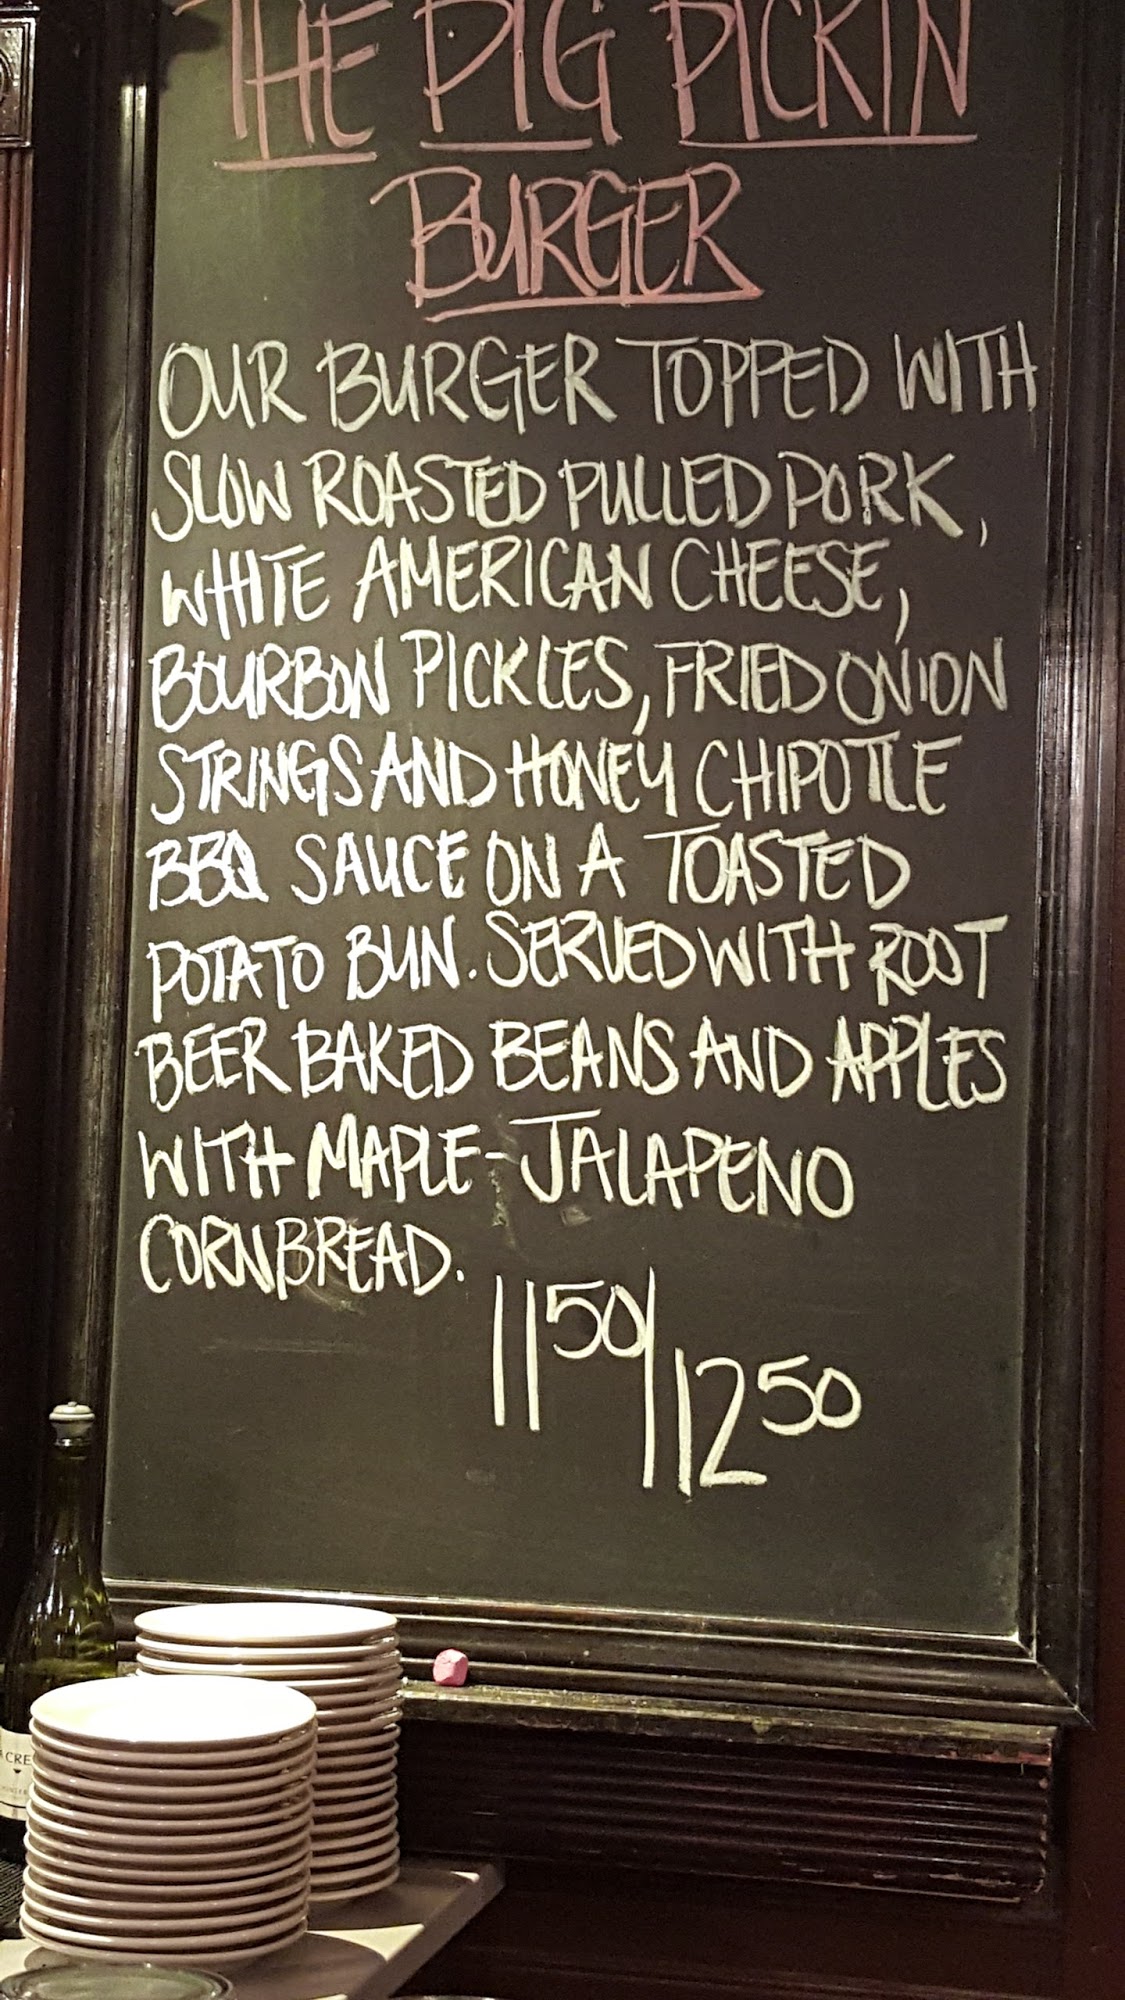 THE PIG PICKIN
BURGER
OUR BURGER TOPPED WITH
SLOW ROASTED PULLED PORK,
WHITE AMERICAN CHEESE,
BOURBON PICKLES, FRIED ONION
STRINGS AND HONEY CHIPOTLE
BBQ SAUCE ON A TOASTED
POTATO BUN. SERVED WITH ROOT
BEER BAKED BEANS AND APPLES
WITH MAPLE-JALAPENO
CORNBREAD.
11 50/12 50
CRE